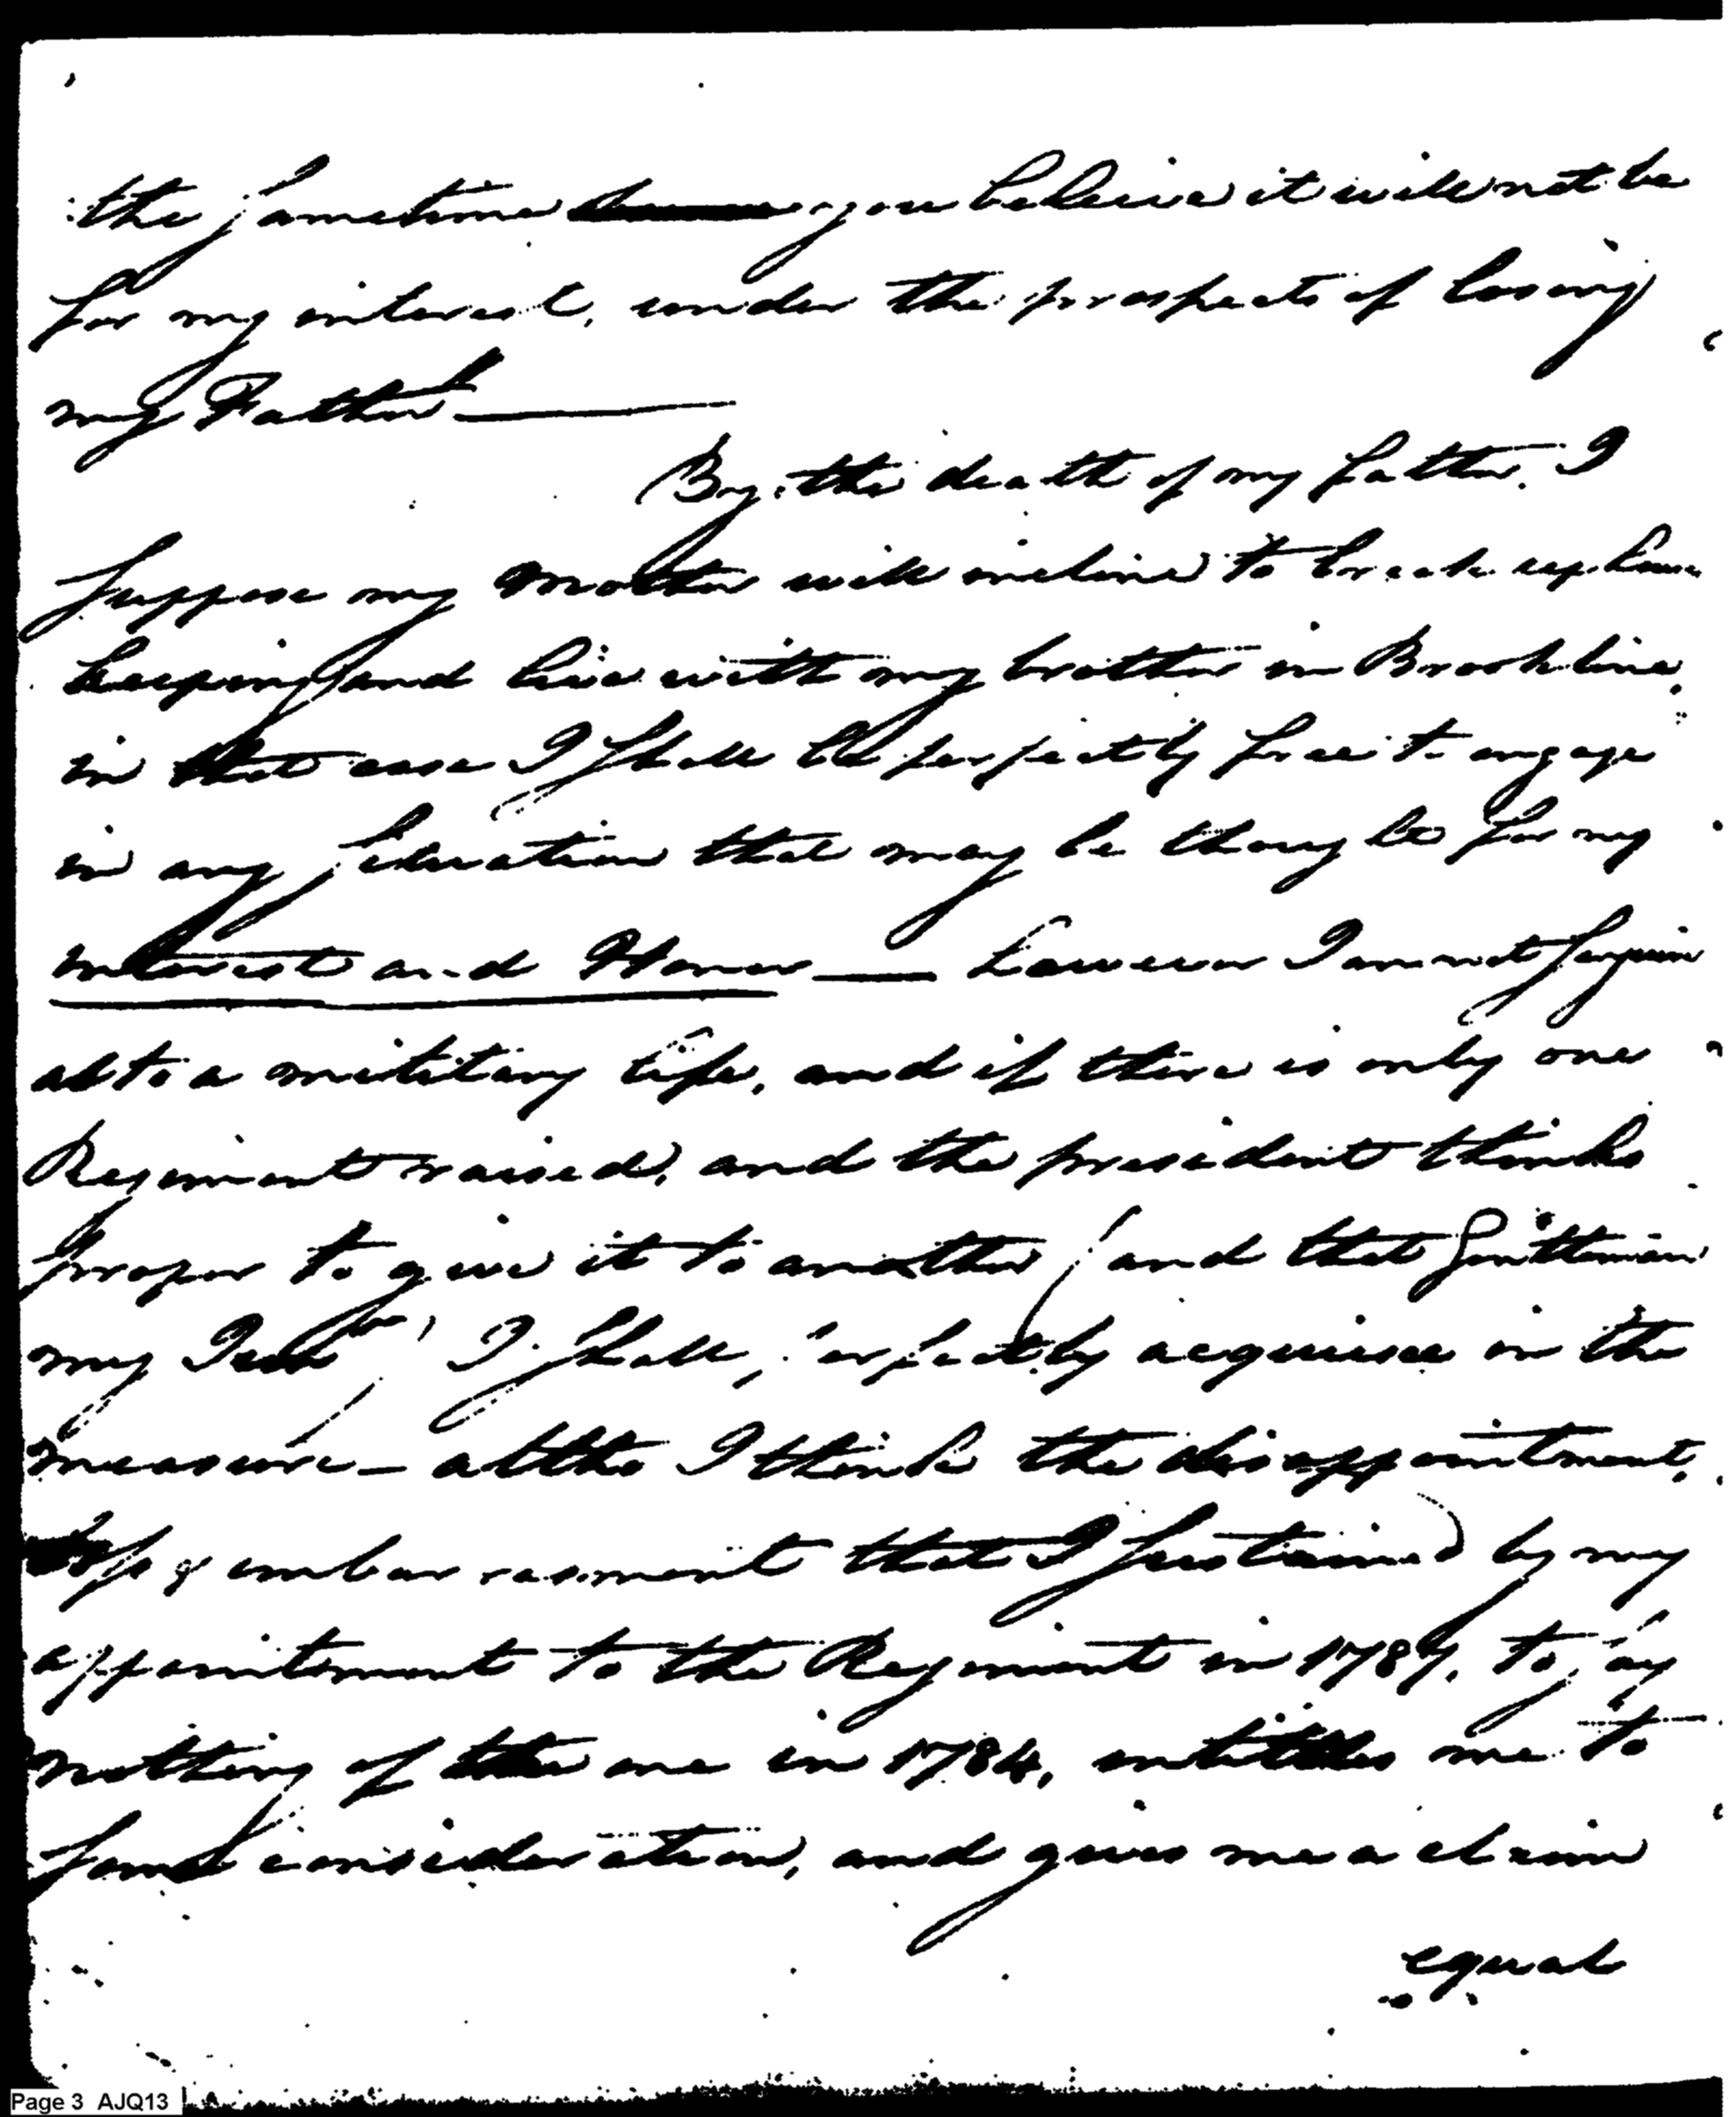 the sametime you beleive it will not be
for my interest, under the prospects of losing
my Father—
By the death of my father. I
suppose my Mother will incline to break up house
keeping and live with my brother in Brookline.
in that case I shall be perfectly free to engage
in any situation that may be thought for my
interest and Honor — however I am not sanguine
as to a military life, and if there is only one
Regiment raised, and the president thinks
proper to give it to another (and that Gentleman
my ) I shall perfectly acquiesce in the
measure — altho I think the disappointment,
loss & embarrasment that I sustained by my
appointment to the Regiment in 1789, to say
nothing of the one in 1784, entitles me to
some consideration, and gives me a claim
equal
Page 3 AJQ13